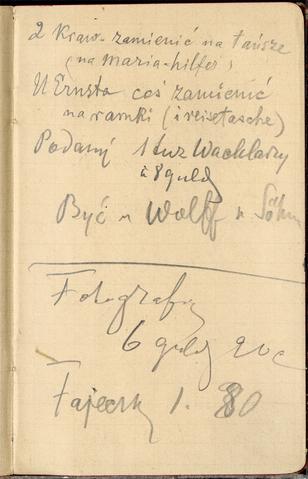 2 Kraw. zamienić na tańsze
(na Maria-hilfer)
U Ernsta coś zamienić
na ramki (i reisetasche)
Podany 1 tuz Wachlarzy
à 8 guld
Być u Wolff u
Fotografij
6 guld
1. 80